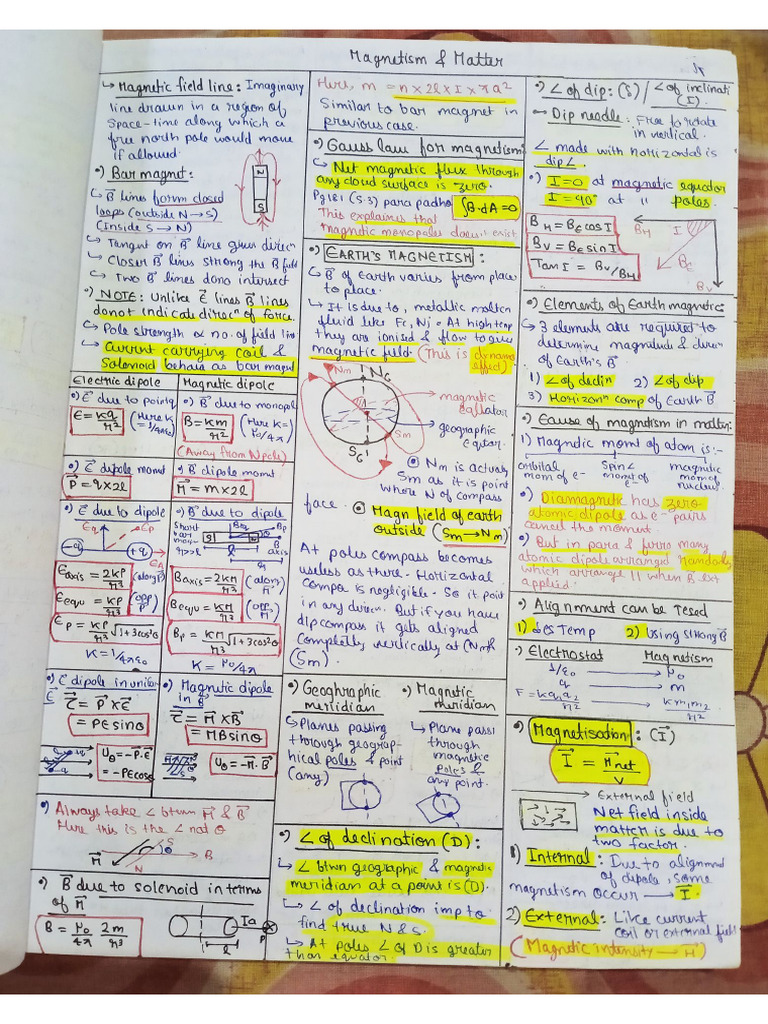 Magnetism & Matter
↳ Magnetic field line: Imaginary
line drawn in a region of
space-time along which a
free north pole would move
if allowed.
•) Bar magnet:
N
S
↳ B⃗ lines form closed
loops (outside N→S)
(Inside S→N)
↳ Tangent on B⃗ line gives direcⁿ
↳ Closer B⃗ lines strong the B⃗ field
↳ Two B⃗ lines dono intersect
•) NOTE: Unlike E⃗ lines B⃗ lines
donot indicate direcⁿ of force.
↳ Pole strength ∝ no. of field line
↳ Current carrying coil &
Solenoid behave as bar magnet
Electric dipole
Magnetic dipole
•) E⃗ due to point q
E = kq/r²
(Here k = 1/4πε₀)
•) B⃗ due to monopole
B = km/r²
(Here k = μ₀/4π)
(Away from N pole)
•) E⃗ dipole momt
P⃗ = q×2l
•) B⃗ dipole momt
M⃗ = m×2l
•) E⃗ due to dipole
-q
+q
E axis = 2kP/r³ (along P⃗)
E equ = kP/r³ (opp P⃗)
E P = kP/r³ √1+3cos²θ
K = 1/4πε₀
•) B⃗ due to dipole
Short bar mag
r>>l
B axis = 2km/r³ (along M⃗)
B equ = kM/r³ (opp M⃗)
B P = kM/r³ √1+3cos²θ
K = μ₀/4π
•) E⃗ dipole in uniform
E⃗
τ⃗ = P⃗×E⃗
= PE sinθ
Uθ = -P⃗.E⃗
= -PE cosθ
•) Magnetic dipole
in B⃗
τ⃗ = M⃗×B⃗
= MB sinθ
Uθ = -M⃗.B⃗
•) Always take ∠ btwn M⃗ & B⃗
Here this is the ∠ not θ
M⃗
S
N
B
•) B⃗ due to solenoid in terms
of M⃗
B = μ₀/4π 2m/r³
Ia
P
l
Here, m = n×2l×I×πa²
Similar to bar magnet in
previous case.
•) Gauss law for magnetism:
↳ Net magnetic flux through
any cloud surface is zero.
Pg181 (5.3) para padho
∫B·dA = 0
This explaines that
magnetic monopoles doesn't exist
•) EARTH'S MAGNETISM:
↳ B⃗ of Earth varies from place
to place.
↳ It is due to, metallic molten
fluid like Fe, Ni → At high temp
they are ionised & flow to give
magnetic field (This is dynamo
effect)
Nm
NG
magnetic
equator
geographic
eqtor.
Sm
SG
⊙ Nm is actualy
Sm as it is point
where N of compass
face.
⊙ Magn field of earth
outside (Sm→Nm)
At poles compass becomes
useless as there. Horizontal
compo is negligible. So it point
in any direcn. But if you have
dip compass it gets aligned
completely vertically at (Nm &
(Sm)
•) Geoghraphic
meridian
↳ Planes passing
through geograp-
hical poles & point
(any)
•) Magnetic
meridian
↳ Plane passi
through
magnetic
poles &
any point.
•) ∠ of declination (D):
↳ ∠ btwn geographic & magnetic
meridian at a point is (D).
↳ ∠ of declination imp to
find true N & S.
↳ At poles ∠ of D is greater
than equator.
•) ∠ of dip: (S) / ∠ of inclinati
(I).
→ Dip needle: Free to rotate
in vertical.
∠ made with horizontal is
dip∠.
•) I=0 at magnetic equator
I=90° at " poles.
BH = BE cos I
BV = BE sin I
Tan I = BV/BH
BH
I
BE
BV
•) Elements of Earth magnetic:
↳ 3 elements are required to
determine magnitude & direcn
of Earth's B⃗
1) ∠ of declin 2) ∠ of dip
3) Horizonⁿ comp of Earth B⃗
•) Cause of magnetism in matter:
1) Magnetic momt of atom is:-
orbital
mom of e⁻
Spin∠
mom of
e⁻
magnetic
mom of
nucleus.
•) Diamagnetic has zero
atomic dipole as e⁻ pairs
cancel the moment.
•) But in para & ferro many
atomic dipole arranged randomly
which arrange || when B⃗ ext
applied.
•) Alignment can be Tesed
1) ↓es Temp 2) Using strong B⃗
•) Electrostat Magnetism
1/ε₀ → μ₀
q → m
F = kq₁q₂/r² → k m₁m₂/r²
•) Magnetisation: (I⃗)
I⃗ = M⃗net/V
→ External field
Net field inside
matter is due to
two factor.
1) Internal: Due to alignment
of dipole, some
magnetism occur → I⃗.
2) External: Like current
coil or external field
(Magnetic intensity → H⃗)